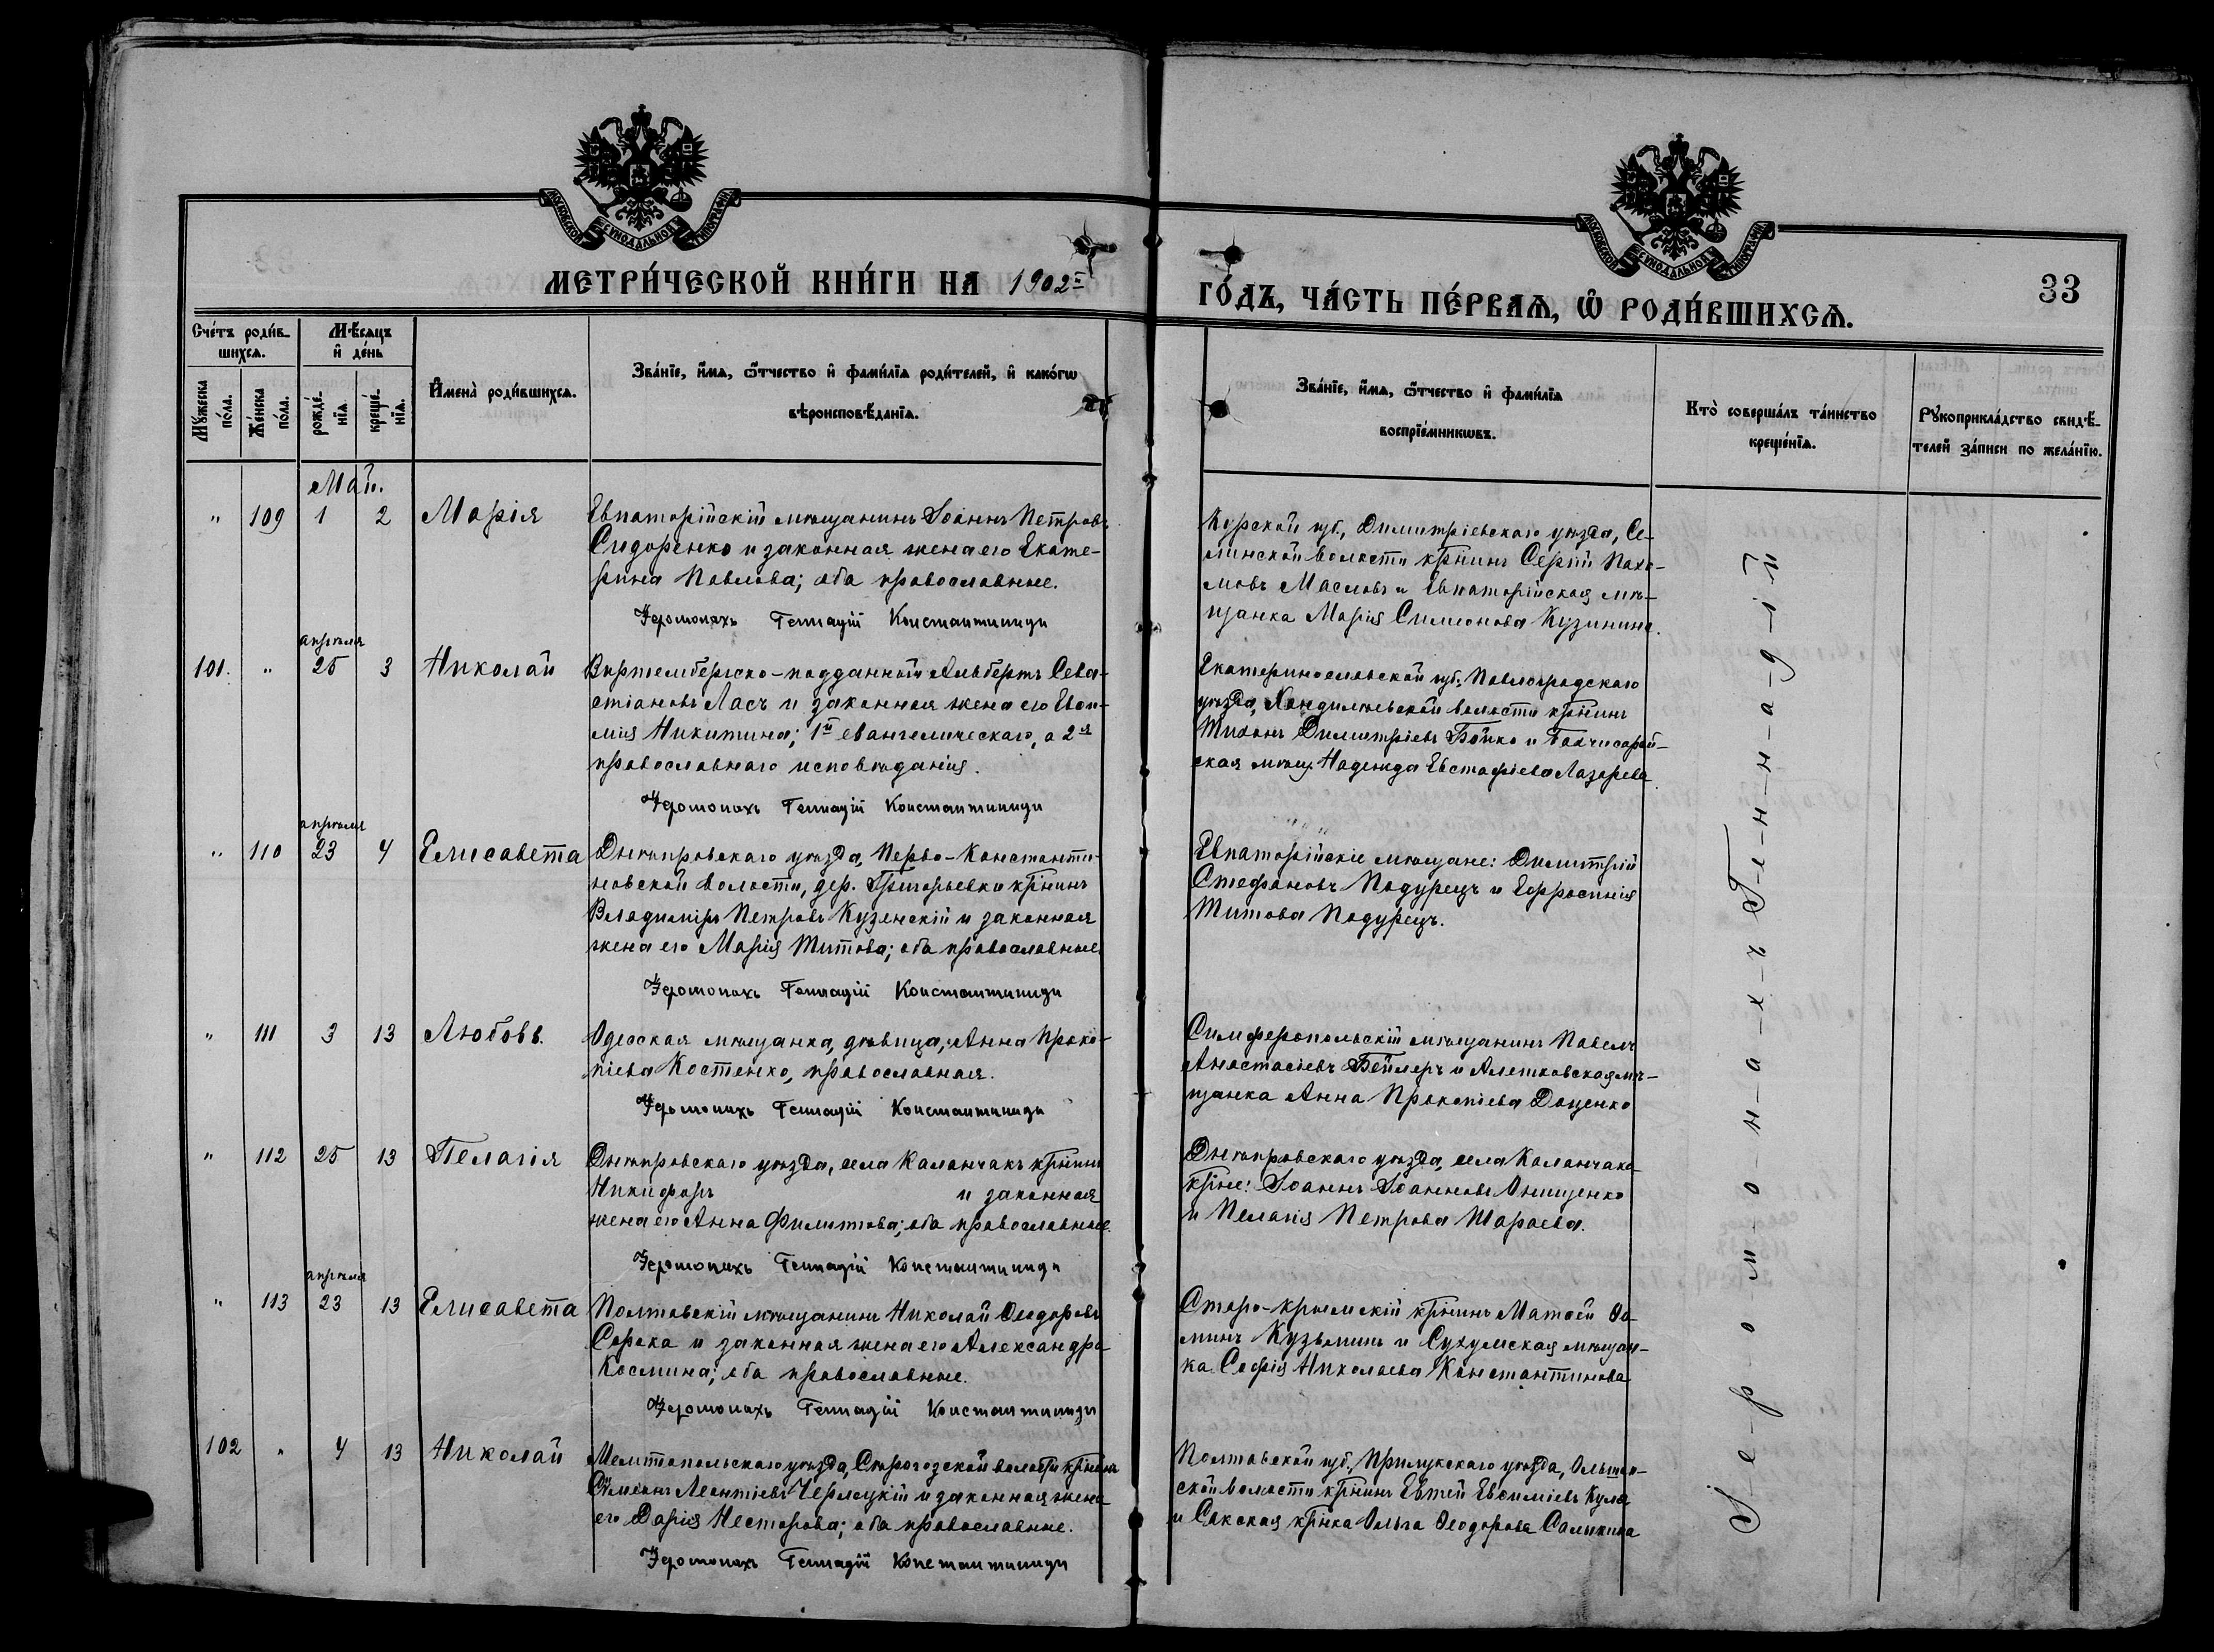 МОСКОВСКОЙ СѴНОДАЛЬНОЙ ТИПОГРАФІИ
МОСКОВСКОЙ СѴНОДАЛЬНОЙ ТИПОГРАФІИ
МЕТРИ́ЧЕСКОЙ КНИ́ГИ НА 1902й
ГО́ДЪ, ЧА́СТЬ ПЕ́РВАѦ, Ѡ҆ РОДИ́ВШИХСѦ.
33
Сче́тъ роди́в-
шихсѧ.
Мѣ́сѧцъ
и҆ де́нь
Мꙋ́жеска
по́ла.
Же́нска
по́ла.
рожде́-
нїѧ.
креще́-
нїѧ.
И҆мена̀ роди́вшихсѧ.
Зва́нїе, и҆́мѧ, ѻ҆́тчество и҆ фами́лїѧ роди́телей, и҆ како́гѡ
вѣроисповѣ́данїѧ.
Зва́нїе, и҆́мѧ, ѻ҆́тчество и҆ фами́лїѧ
воспрїе́мникѡвъ.
Кто̀ соверша́лъ та́инство
креще́нїѧ.
Рꙋкоприкла́дство свидѣ́-
телей за́писи по жела́нїю.
Май.
" 109 1 2 Марія
Евпаторійскій мѣщанинъ Іоаннъ Петровъ
Сидоренко и законная жена его Екате-
рина Павлова; оба православные.
Іеромонахъ Геннадій Константиниди
Курской губ., Димитріевскаго уѣзда, Се-
линской волости крнинъ Сергій Пахо-
мовъ Масловъ и Евпаторійская мѣ-
щанка Марія Симеонова Кузинина.
апрѣля
101. " 25 3 Николай
Виртембергско-подданный Альбертъ Сева-
стіановъ Ласъ и законная жена его Евѳи-
мія Никитина; 1й евангелическаго, а 2я
православнаго исповѣданія.
Іеромонахъ Геннадій Константиниди
Екатеринославской губ., Павлоградскаго
уѣзда, волости крнинъ
Тихонъ Димитріевъ Бойко и Бахчисарай-
ская мѣщ. Надежда Евстафіева Лазарева
апрѣля
" 110 23 4 Елисавета
Днѣпровскаго уѣзда, Перво-Константи-
новской волости, дер. Григорьевки крнинъ
Владиміръ Петровъ Кузенскій и законная
жена его Марія Титова; оба православные.
Іеромонахъ Геннадій Константиниди
Евпаторійскіе мѣщане: Димитрій
Стефановъ Подурецъ и Ефросинія
Титова Подурецъ.
" 111 3 13 Любовь.
Одесская мѣщанка, дѣвица, Анна Проко-
піева Костенко, православная.
Іеромонахъ Геннадій Константиниди
Симферопольскій мѣщанинъ Павелъ
Анастасіевъ Бейлеръ и Алешковская мѣ-
щанка Анна Прокопіева Доценко
" 112 25 13 Пелагія
Днѣпровскаго уѣзда, села Каланчакъ крнинъ
Никифоръ и законная
жена его Анна Филитова; оба православные.
Іеромонахъ Геннадій Константиниди
Днѣпровскаго уѣзда, села Каланчака
крне: Іоаннъ Іоанновъ Онищенко
и Пелагія Петрова Шараева.
апрѣля
" 113 23 13 Елисавета
Полтавскій мѣщанинъ Николай Ѳеодоровъ
Сорока и законная жена его Александра
Космина; оба православные.
Іеромонахъ Геннадій Константиниди
Старо-крымскій крнинъ Матѳей Ѳо-
минъ Кузьминъ и Сухумская мѣщан-
ка Софія Николаева Константинова
102 " 4 13 Николай
Мелитопольскаго уѣзда, Сѣрогозской волости крнинъ
Сѵмеонъ Леонтіевъ Черлецкій и законная жена
его Дарія Несторова; оба православные.
Іеромонахъ Геннадій Константиниди
Полтавской губ., Прилукскаго уѣзда,
ской волости крнинъ Евтей Евѳиміевъ Кула
и Сакская крнка Ольга Ѳеодорова Салыкина
І-е-р-о-м-о-н-а-х-ъ Г-е-н-н-а-д-і-й